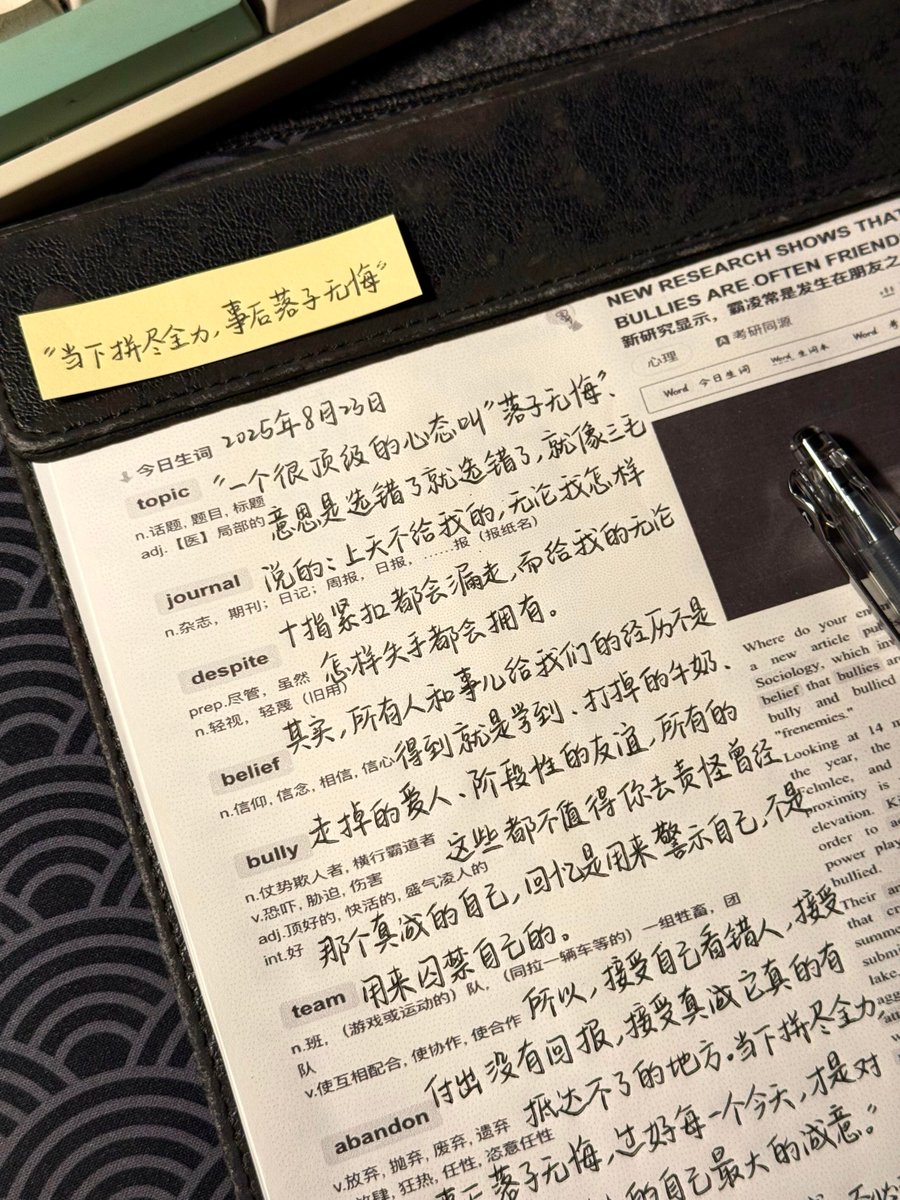 "当下拼尽全力，事后落子无悔"
NEW RESEARCH SHOWS THAT
BULLIES ARE OFTEN FRIEND
新研究显示，霸凌常是发生在朋友之
心理 考研同源
Word 今日生词 Word 生词本 Word
2025年8月23日
今日生词
"一个很顶级的心态叫"落子无悔"、
topic
n.话题, 题目, 标题
adj.【医】局部的
意思是选错了就选错了，就像三毛
说的：上天不给我的，无论我怎样
journal
n.杂志，期刊；日记；周报，日报，……报（报纸名）
十指紧扣都会漏走，而给我的无论
despite
prep.尽管，虽然
n.轻视，轻蔑（旧用）
怎样失手都会拥有。
其实，所有人和事儿给我们的经历不是
belief
n.信仰, 信念, 相信, 信心
得到就是学到、打掉的牛奶、
走掉的爱人、阶段性的友谊，所有的
bully
n.仗势欺人者, 横行霸道者
v.恐吓, 胁迫, 伤害
adj.顶好的, 快活的, 盛气凌人的
int.好
这些都不值得你去责怪曾经
那个真诚的自己，回忆是用来警示自己，不是
用来囚禁自己的。
team
n.班，（游戏或运动的）队，（同拉一辆车等的）一组牲畜，团
队
v.使互相配合, 使协作, 使合作
所以，接受自己看错人，接受
付出没有回报，接受真诚它真的有
abandon
v.放弃, 抛弃, 废弃, 遗弃
狂热, 任性, 恣意任性
抵达不了的地方。当下拼尽全力，
事后落子无悔，过好每一个今天，才是对
的自己最大的诚意。"
Where do your en
a new article pu
Sociology, which in
belief that bullies ar
bully and bullied
"frenemies."
Looking at 14 m
the year, the
Felmlee, and
proximity is
elevation. Ki
order to ac
power play
bullied.
Their ar
that cr
summe
submi
lake.
agg